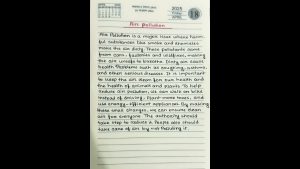 2025
FRIDAY
APRIL
18
Air Pollution
Air Pollution is a major issue where harm-
ful substances like smoke and chemicals
make the air dirty. These pollutants come
from cars, factories and wildfires, making
the air unsafe to breathe. Dirty air cause
health Problems such as coughing, asthma,
and other serious disease. It is important
to keep the air clean for our health and
the health of animals and plants. To help
reduce air pollution, we can walk or bike
instead of driving, Plant more trees, and
use energy-efficient appliances. By making
these small changes, we can ensure clean
air for everyone. The authorities should
take step to reduce it. People also should
take care of air by not Polluting it.